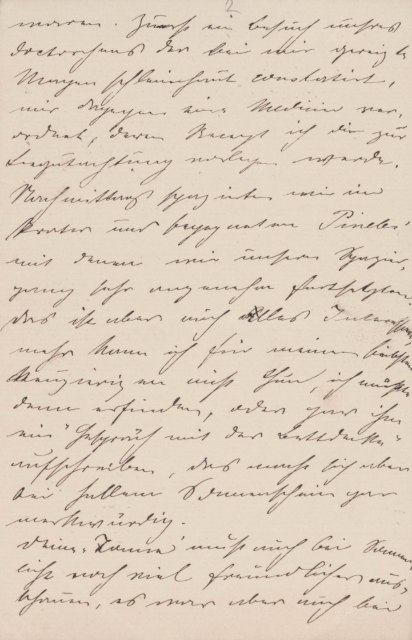 2
waren. Zuerst ein Besuch unseres
Doctorchens der bei mir gereizte
Magenschleimhaut constatirt,
mir dagegen eine Medicin ver-
ordnet, deren Recept ich dir zur
Begutachtung vorlegen werde.
Nachmittags spazirten wir im
Prater und begegneten Pineles'
mit denen wir unseren Spazier-
gang sehr angenehm fortsetzten
das ist aber auch Alles Interessante
mehr kann ich für meinen liebsten
Neugierigen nicht thun, ich müsste
denn erfinden, oder gar ihm
ein "Gespräch mit der Bettdecke"
aufschreiben, das macht sich aber
bei hellem Sonnenschein gar
merkwürdig.
Deine muss auch bei
licht noch viel freundlicher aus-
schauen, es war aber auch bei